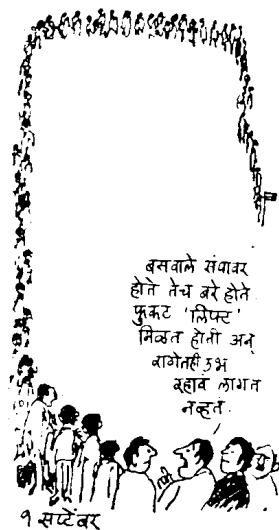 बसवाले संपावर
होते तेच बरे होते.
फुकट 'लिफ्ट'
मिळत होती अन्
रांगेतही उभं
रहावं लागत
नव्हतं.
१ सप्टेंबर